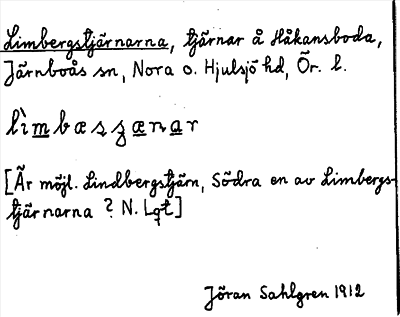 Limbergstjärnarna, tjärnar å Håkansboda,
Järnboås sn, Nora o. Hjulsjö hd, Ör. l.
lìmbæsʒænar
[Är möjl. Lindbergstjärn, Södra en av Limbergs-
tjärnarna? N. Lqt]
Jöran Sahlgren 1912